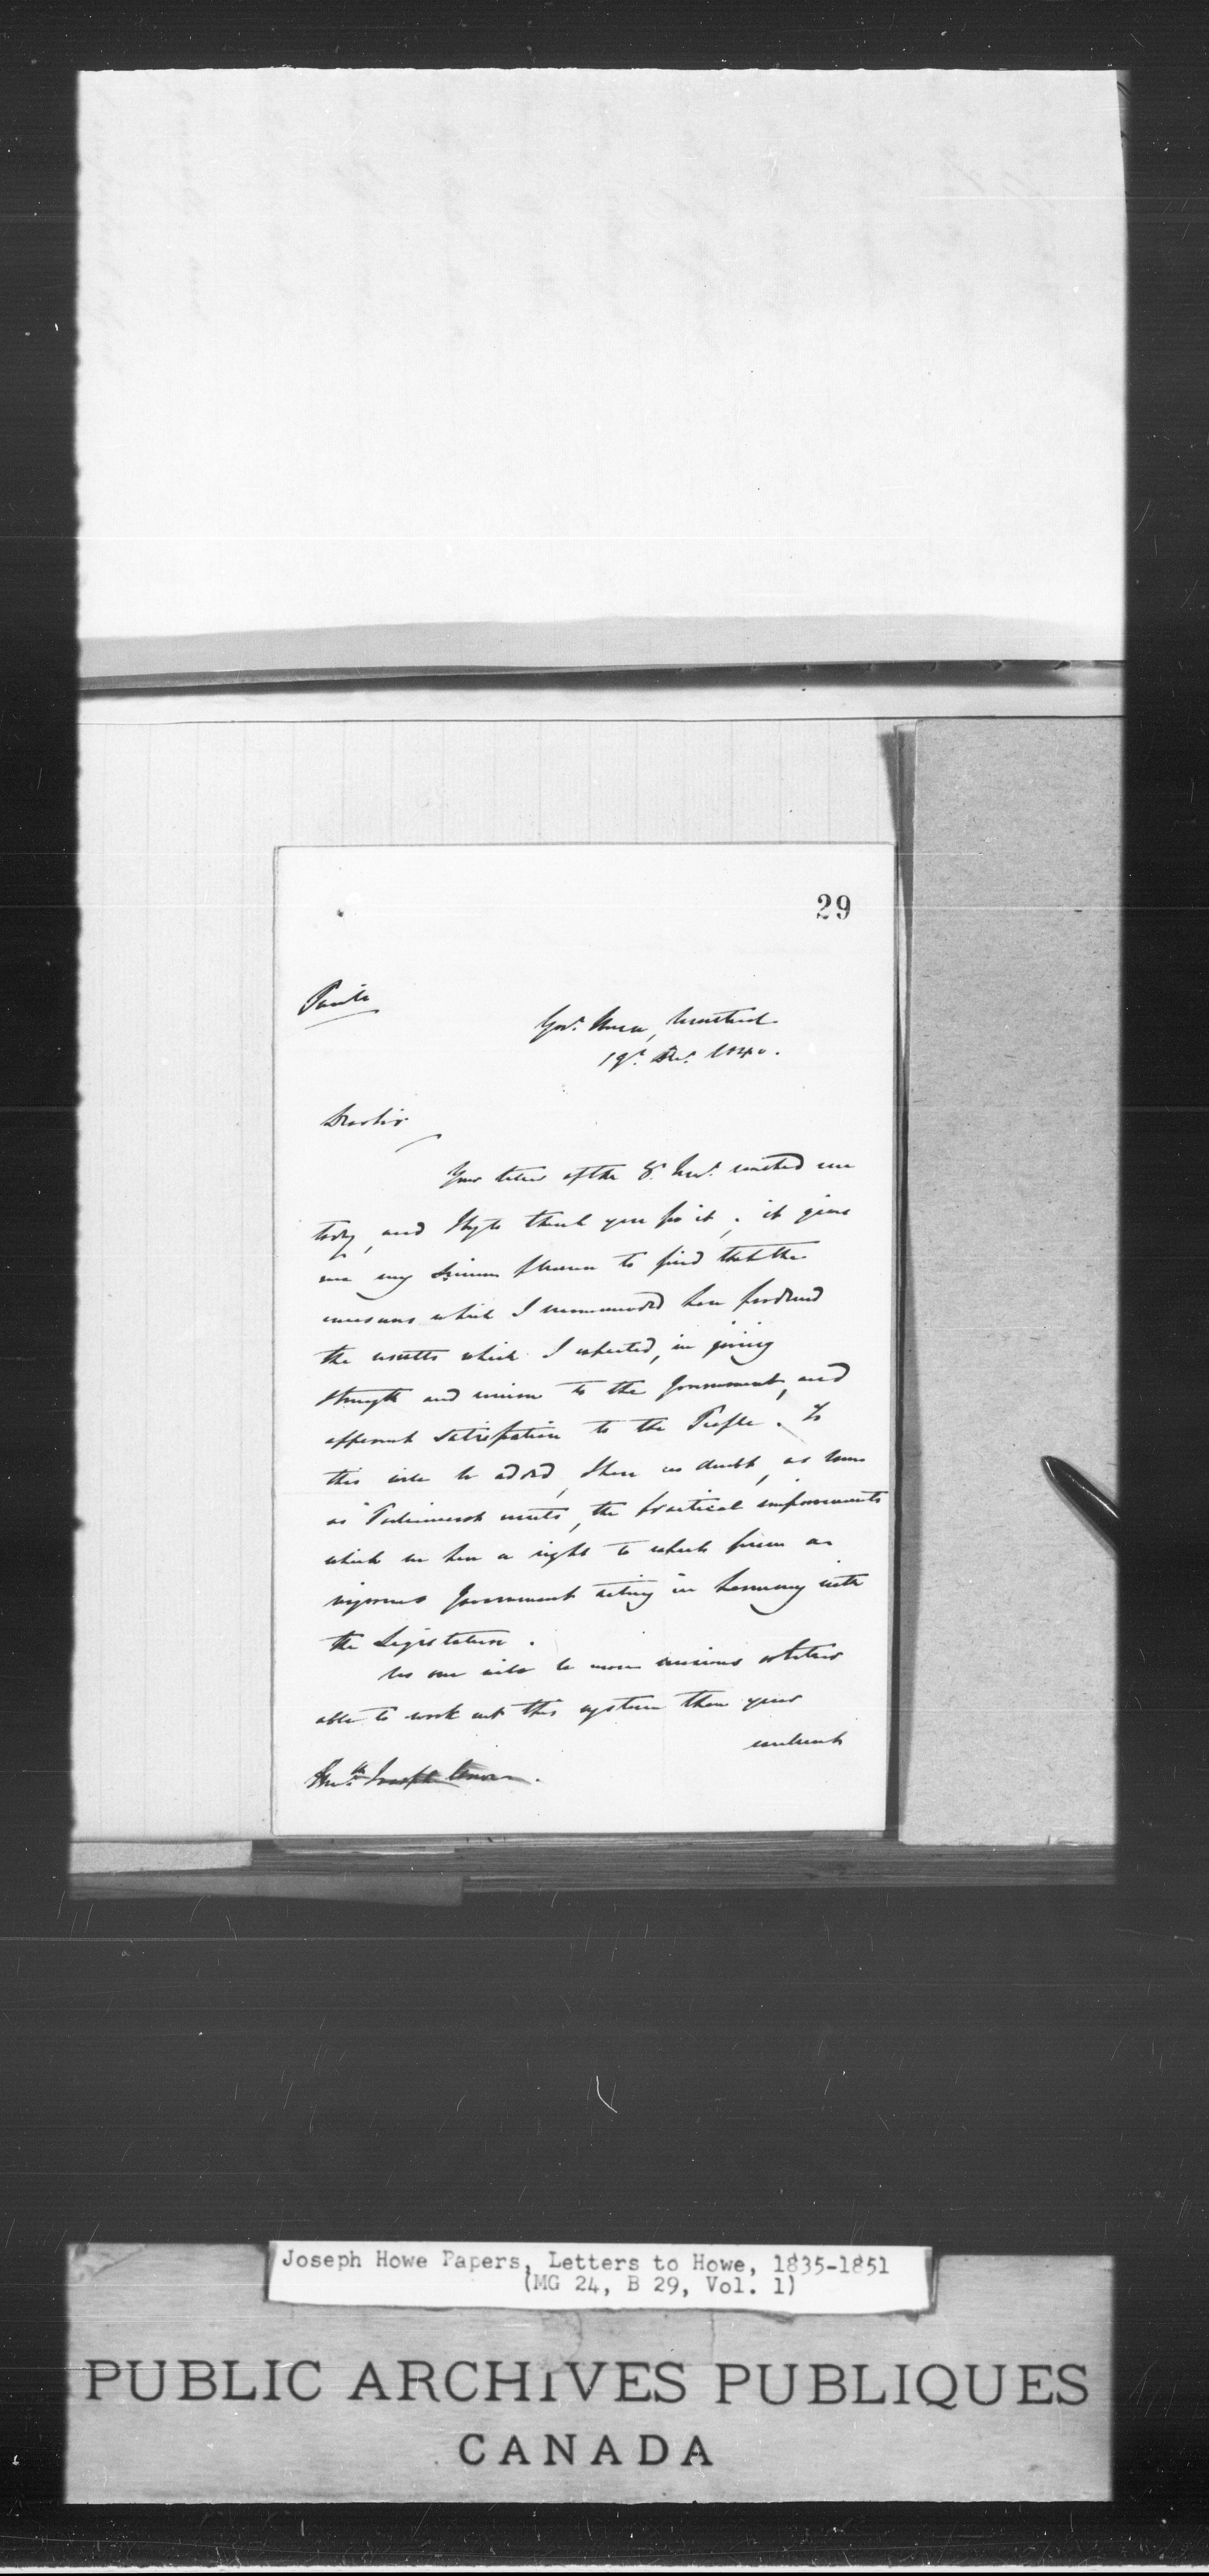 29
Private
Govt. House, Montreal
19th. Decr. 1840.
Dear Sir
Your letter of the 8th. reached me
today, and I beg to thank you for it; it gives
me very sincere pleasure to find that the
measures which I recommended have produced
the results which I expected, in giving
strength and union to the Government, and
apparent satisfaction to the People. To
this will be added, I have no doubt, as soon
as Parliament meets, the practical improvements
which we have a right to expect from a
vigorous Government acting in harmony with
the Legislature.
No one will be more anxious or better
able to work out this system than your
Honble. Joseph Howe.
Joseph Howe Papers, Letters to Howe, 1835-1851
(MG 24, B 29, Vol. 1)
PUBLIC ARCHIVES PUBLIQUES
CANADA